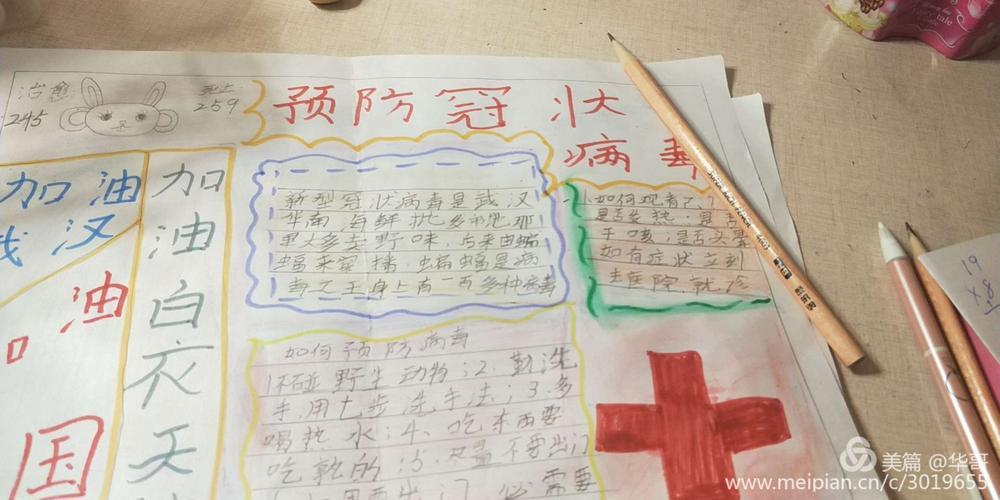 治愈
245
死亡
259
预防冠状
病毒
加油
武汉
油
国
加
油
白
衣
天
新型冠状病毒是武汉
华南海鲜批
野味,后来由蝙
蝠来
播,蝙蝠是病
毒之王身上有一百多种病毒
如何
是否发热;是否
干咳;是否头晕
如有症状立刻
去医院就诊
如何预防病毒
1不碰野生动物;2、勤洗
手,用七步洗手法;3、多
喝热水;4、吃东西要
吃熟的;5、尽量不要出门
需要
19
x 8
美篇 @华哥
www.meipian.cn/c/3019655